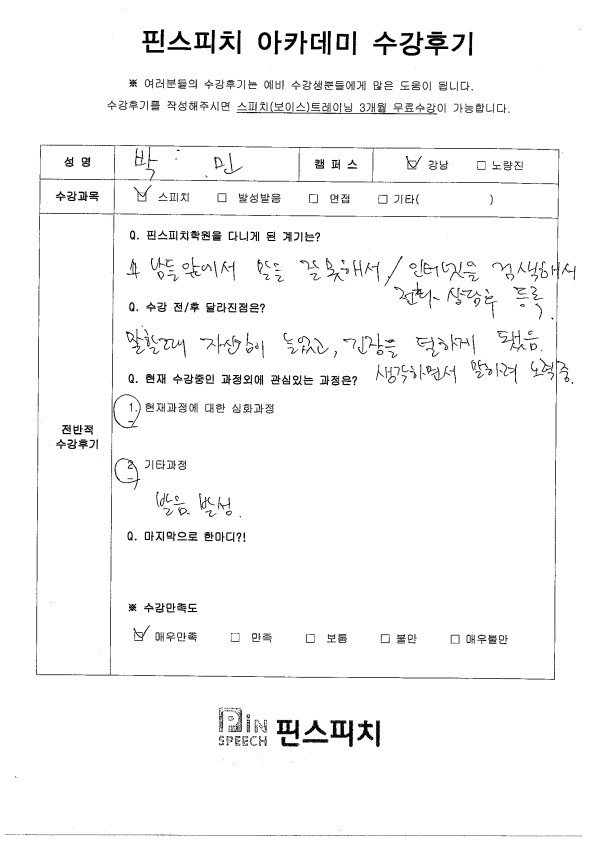 핀스피치 아카데미 수강후기
※ 여러분들의 수강후기는 예비 수강생분들에게 많은 도움이 됩니다.
수강후기를 작성해주시면 스피치(보이스)트레이닝 3개월 무료수강이 가능합니다.
성 명 박 민 캠 퍼 스 ☑ 강남 □ 노량진
수강과목 ☑ 스피치 □ 발성발음 □ 면접 □ 기타( )
Q. 핀스피치학원을 다니게 된 계기는?
남들 앞에서 말을 잘 못해서 / 인터넷을 검색해서
전화 상담후 등록.
Q. 수강 전/후 달라진점은?
말할때 자신감이 늘었고, 긴장을 덜하게 됐음.
생각하면서 말하려 노력중.
Q. 현재 수강중인 과정외에 관심있는 과정은?
1. 현재과정에 대한 심화과정
전반적
수강후기
2. 기타과정
발음, 발성.
Q. 마지막으로 한마디?!
※ 수강만족도
☑ 매우만족 □ 만족 □ 보통 □ 불만 □ 매우불만
PiN
SPEECH 핀스피치